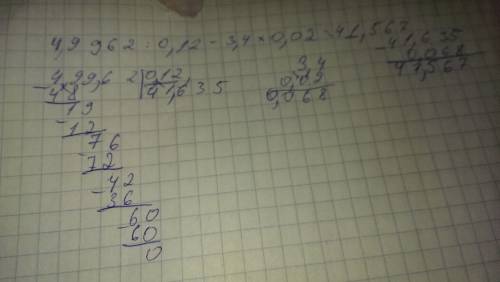 4,9962 : 0,12 - 3,4 × 0,02 = 41,567
499,6 2 | 0,12
- 48 | 41,635
19
- 12
76
- 72
- 42
36
- 60
60
0
3,4
0,02
0,068
- 41,635
0,068
41,567